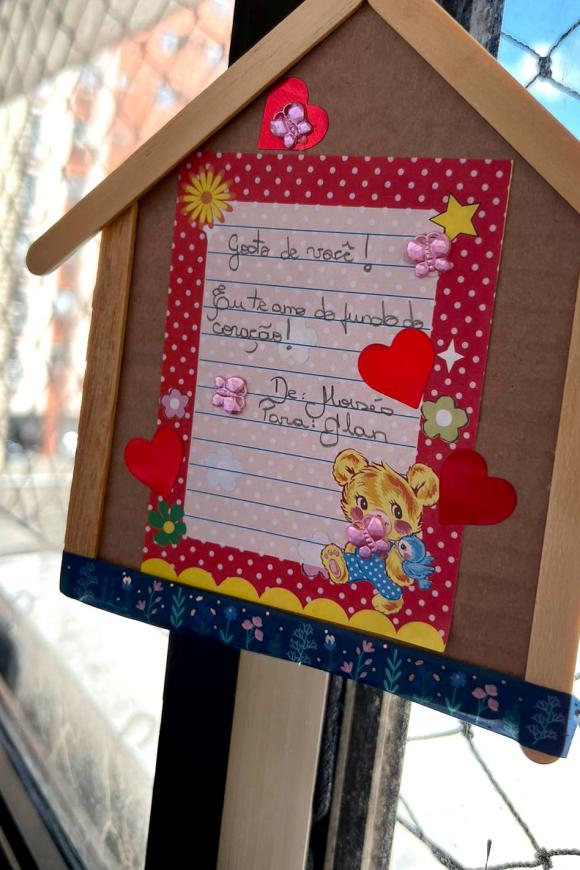 Gosto de você!
Eu te amo do fundo do
coração!
De: Moisés
Para: Alan